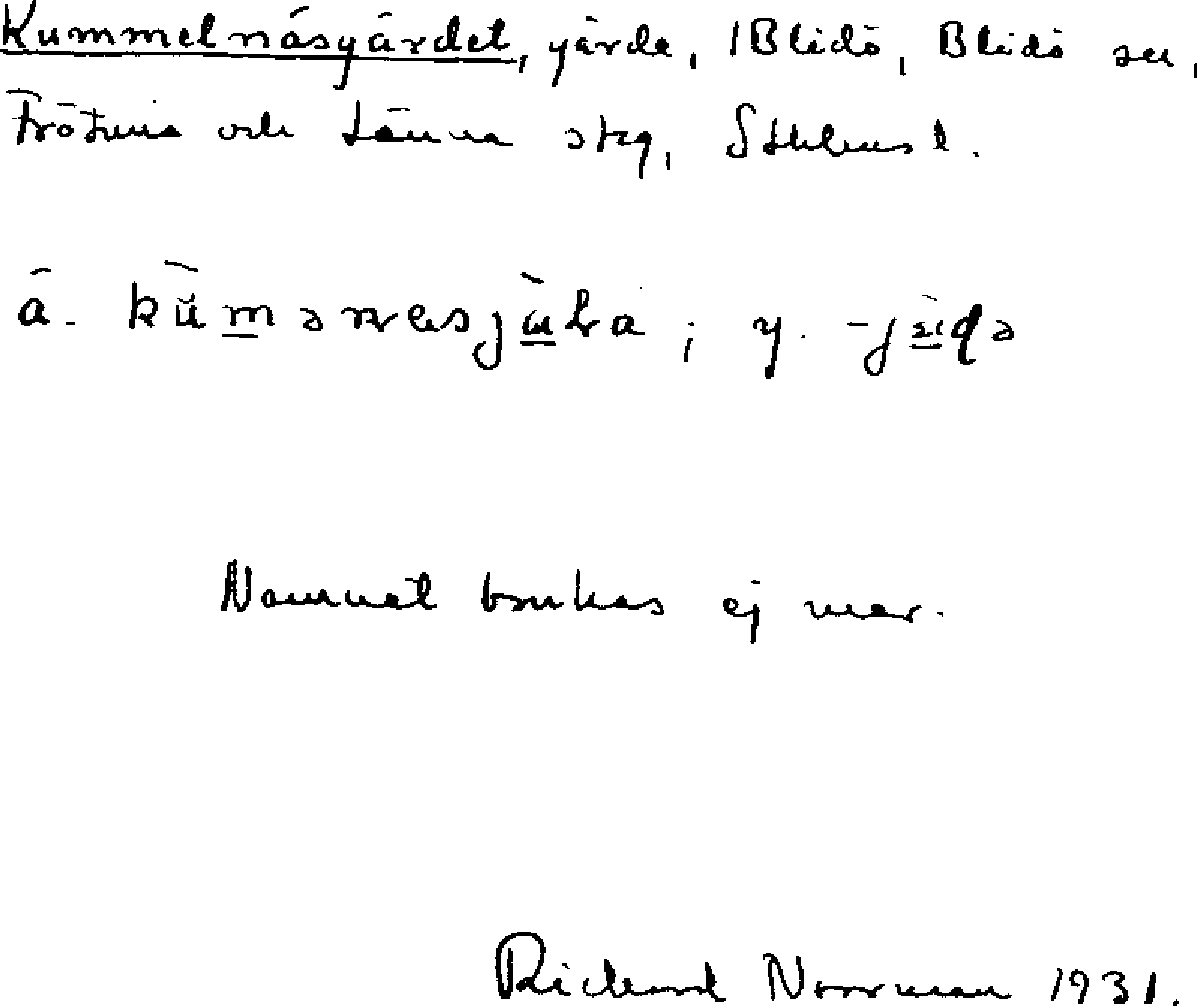 Kummelnäsgärdet, gärde, 1 Blidö, Blidö sn,
Frötuna och Länna skg, Sthlms l.
ä. ; y.
Namnet brukas ej mer.
Richard Norrman 1931.